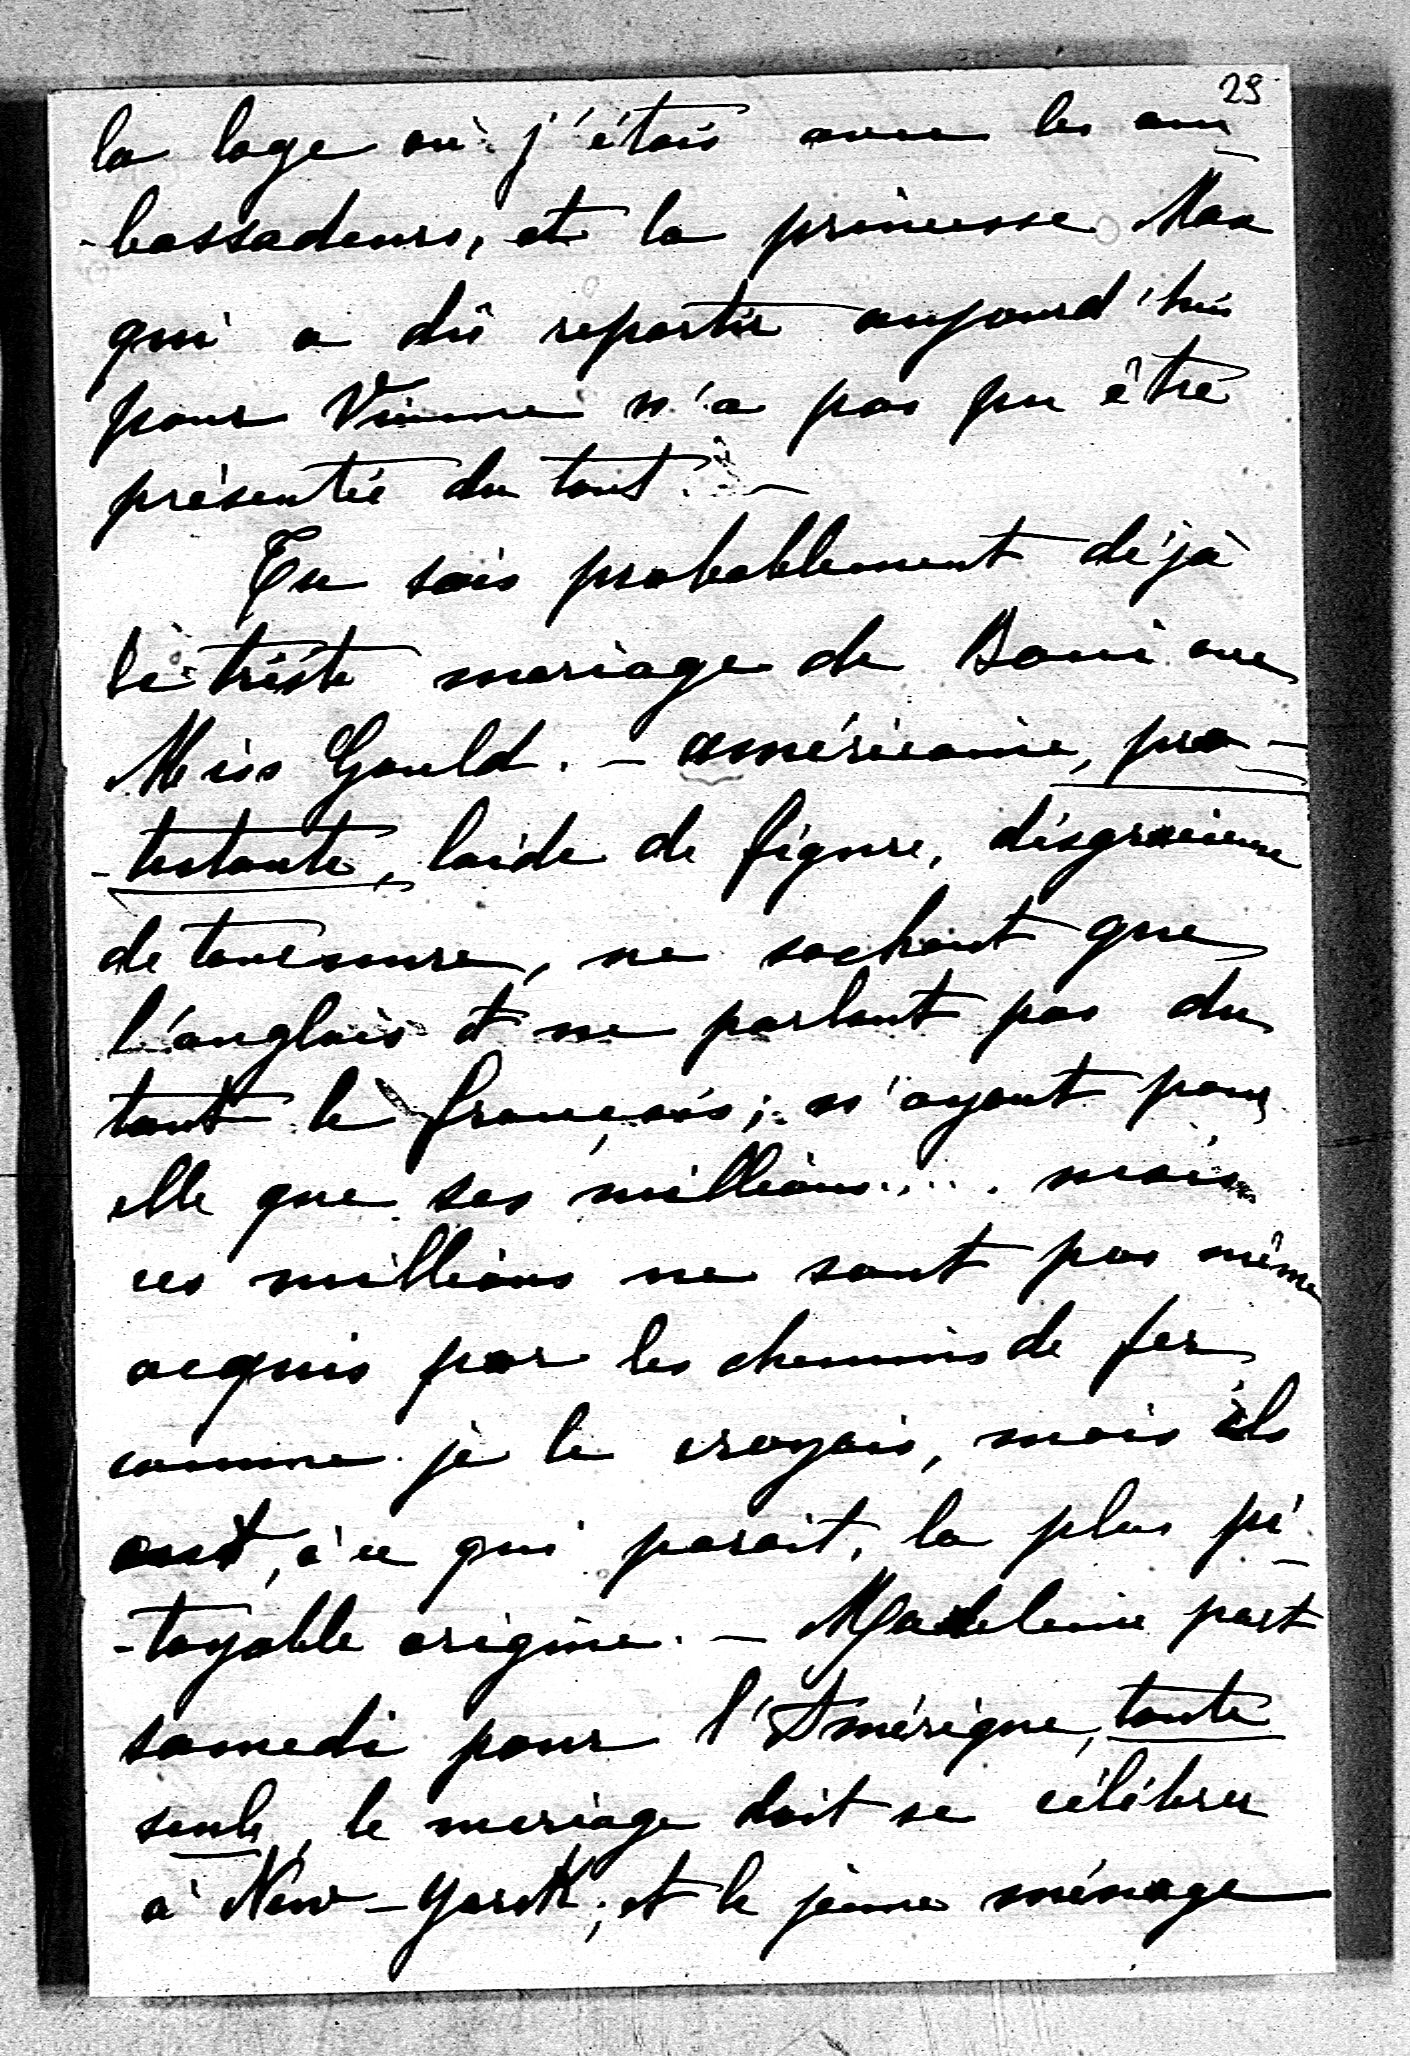 29
la loge où j'étais avec les am
-bassadeurs, et la princesse Max
qui a dû repartir aujourd'hui
pour Vienne n'a pas pu être
présentée du tout. —
Tu sais probablement déjà
le triste mariage de Boni avec
Miss Gould. — américaine, pro-
-testante, laide de figure, disgracieuse
de tournure, ne sachant que
l'anglais et ne parlant pas du
tout le français; n'ayant pour
elle que ses millions.... mais
ces millions ne sont pas même
acquis par les chemins de fer
comme je le croyais, mais ils
ont, à ce qui parait, la plus pi
-toyable origine. — Madeleine part
samedi pour l'Amérique, toute
seule, le mariage doit se célébrer
à New-Yorck; et le jeune ménage